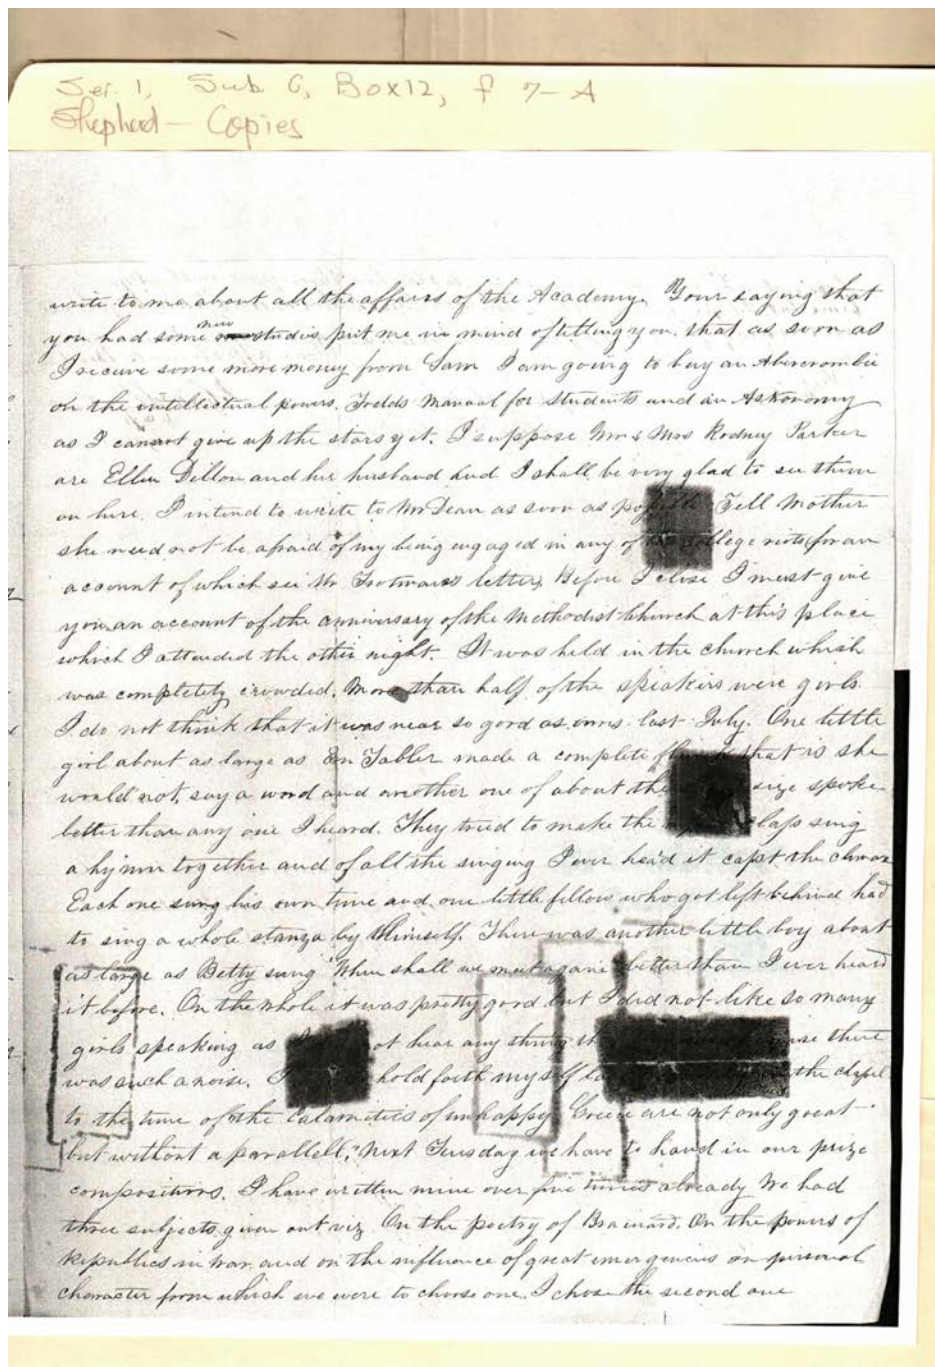 Ser. 1, Sub 6, Box 12, f 7-A
Shepherd - Copies
write to me about all the affairs of the Academy. Your saying that
you had some new studies put me in mind of telling you, that as soon as
I receive some more money from Sam I am going to buy an Abercrombie
on the intellectual powers. Todds Manual for Students and an Astronomy
as I cannot give up the stars yet. I suppose Mr & Mrs Rodney Parker
are Ellen Dillon and her husband and I shall be very glad to see them
on here. I intend to write to Mr Dean as soon as possible Tell Mother
she need not be afraid of my being engaged in any of the college riots, for an
account of which see Mr letter. Before I close I must give
you an account of the anniversary of the Methodist Church at this place
which I attended the other night. It was held in the church which
was completely crowded. More than half of the speakers were girls
I do not think that it was near so good as ours last July. One little
girl about as large as Em Tabler made a complete that is she
would not say a word and another one of about the size spoke
better than any one I heard. They tried to make the class sing
a hymn together and of all the singing I ever hea'd it capt the climax
Each one sung his own tune and one little fellow who got left behind had
to sing a whole stanza by himself. There was another little boy about
as large as Betty sung "When shall we meet again" better than I ever heard
it before. On the whole it was pretty good but I did not like so many
girls speaking as I not hear any thing there
was such a noise. I hold forth myself the chapel
to the tune of the Calamities of unhappy Greece are not only great
but without a parallell." Next Tuesday we have to hand in our prize
compositions. I have written mine over five times already We had
three subjects given out viz On the poetry of Brainard. On the powers of
Republics in war, and on the influence of great emergencies on personal
character from which we were to choose one. I chose the second one